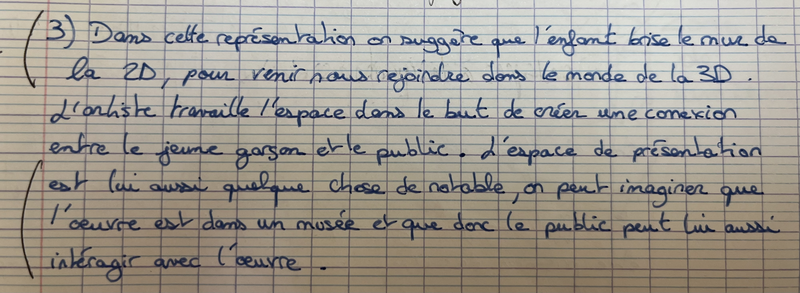 3) Dans cette représentation on suggère que l'enfant brise le mur de
la 2D, pour venir nous rejoindre dans le monde de la 3D.
L'artiste travaille l'espace dans le but de créer une conexion
entre le jeune garson et le public. L'espace de présentation
est lui aussi quelque chose de notable, on peut imaginer que
l'œuvre est dans un musée et que donc le public peut lui aussi
intéragir avec l'œuvre.